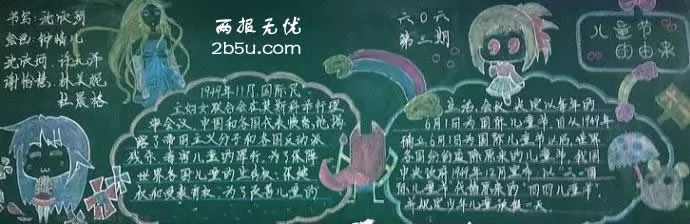 书写:沈欣珂
绘画:钟情儿
沈欣珂、许元泽
谢怡慧、林美妮
杜晨格
两报无优
2b5u.com
六〇六
第三期
儿童节
由由来
1949年11月,国际民
主妇女联合会在莫斯科举行理
事会议,中国和各国代表愤怒地揭
露了帝国主义分子和各国反动派
残杀、毒害儿童的罪行。为了保障
世界各国儿童的生存权、保健
权和受教育权,为了改善儿童的
生活,会议决定以每年的
6月1日为国际儿童节。自从1949年
确立6月1日为国际儿童节以后,世界
各国纷纷选原来的儿童节,我国
中央政府1949年12月宣布,以"六一"国
际儿童节代替原来的"四四儿童节",
并规定少年儿童放假一天